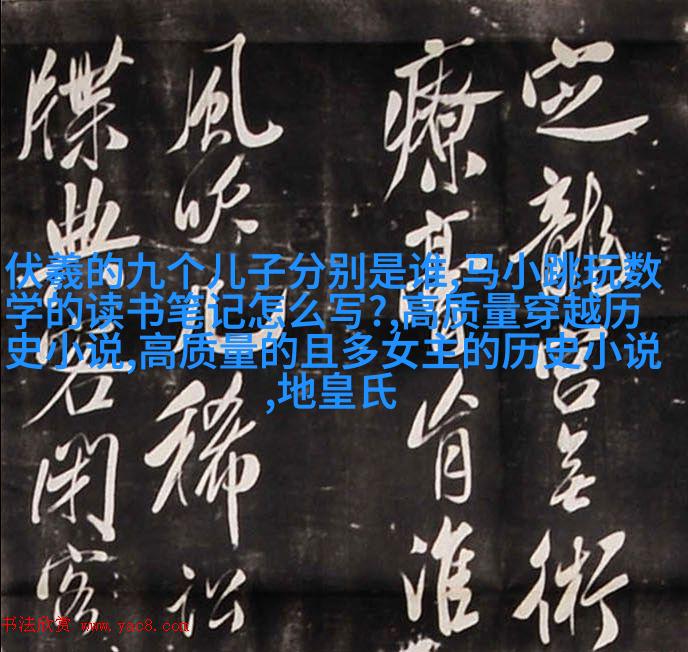 龍宮無術
療膏肓淮
風吹 稀訟
牒 閑客
伏羲的九个儿子分别是谁,马小跳玩数
学的读书笔记怎么写?,高质量穿越历
史小说,高质量的且多女主的历史小说
,地皇氏
书法欣赏 www.yac8.com